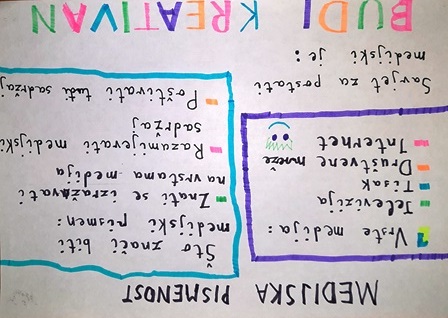 MEDIJSKA PISMENOST
Vrste medija:
Televizija
Tisak
Društvene mreže
Internet
Što znači biti
medijski pismen:
Znati se izražavati
na vrstama medija
Razumijevati medijski
sadržaj
Poštivati tuđi sadržaj
Savjet za postati
medijski je:
BUDI KREATIVAN